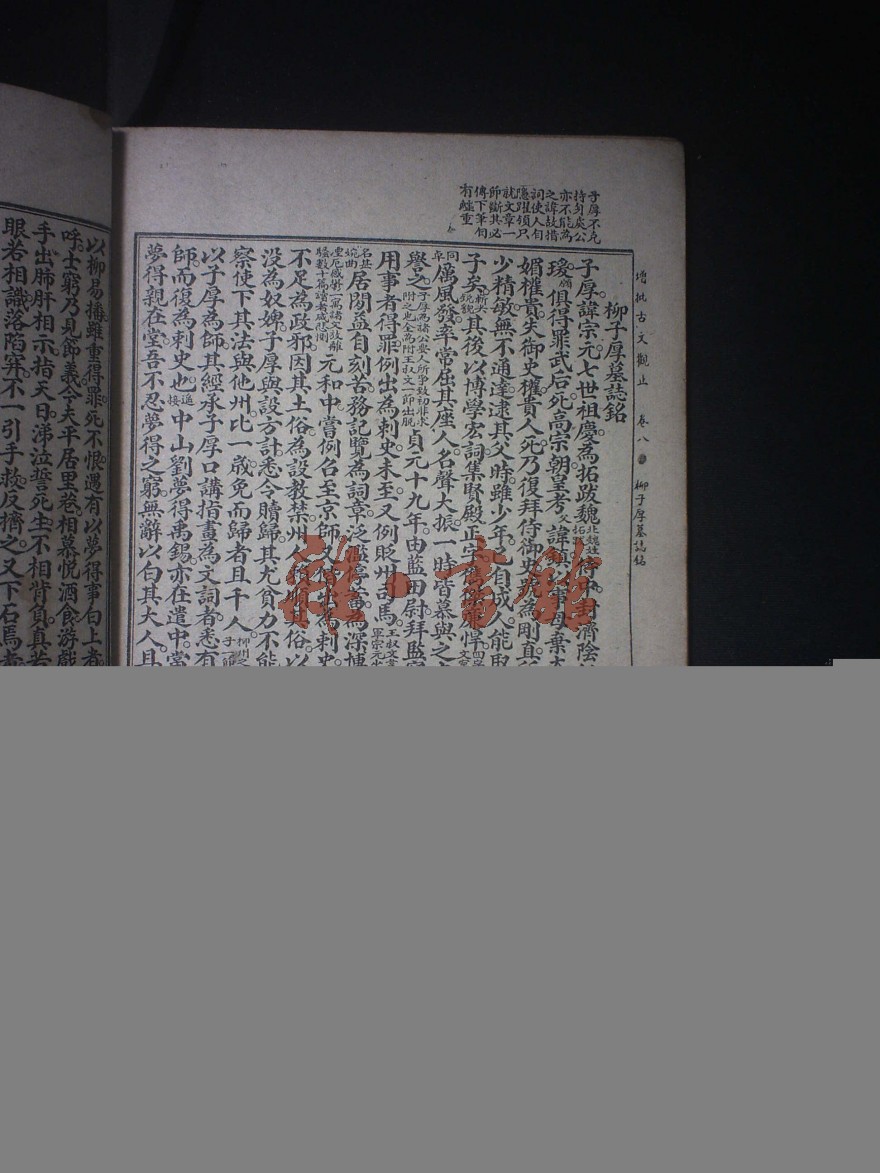 增批古文觀止 卷八 柳子厚墓誌銘
子厚不克
持身矣公
亦不能為
之諱故措
詞使人自
隱躍須只
就文章一
節斷其必
傳下筆
有輕重
柳子厚墓誌銘
子厚諱宗元七世祖慶為拓跋魏侍中封濟陰
瑗俱得罪武后死高宗朝皇考父諱鎮以事母棄太
媚權貴失御史權貴人死乃復拜侍御史號為剛直
少精敏無不通達逮其父時雖少年已自成人能取
子矣嶄然貌其後以博學宏詞集賢殿正字
厲風發率常屈其座人名聲大振一時皆慕與之
譽之子厚為諸公要人所爭致初非求附之也全為附王叔文一節出脫貞元十九年由藍田尉拜監察
用事者得罪例出為刺史未至又例貶州司馬
居閒益自刻苦務記覽為詞章泛濫停蓄為深博
元和中嘗例召至京師又偕出為刺史
不足為政邪因其土俗為設教禁州人順其俗以
沒為奴婢子厚與設方計悉令贖歸其尤貧力不能
察使下其法與他州比一歲免而歸者且千人
以子厚為師其經承子厚口講指畫為文詞者悉有
師而復為刺史也接中山劉夢得禹錫亦在遣中當
夢得親在堂吾不忍夢得之窮無辭以白其大人且
以柳易播雖重得罪死不恨遇有以夢得事白上者
呼士窮乃見節義今夫平居里巷相慕悅酒食游戲
手出肺肝相示指天日涕泣誓死生不相背負真若
眼若相識落陷穽不一引手救反擠之又下石焉者
雜·書館